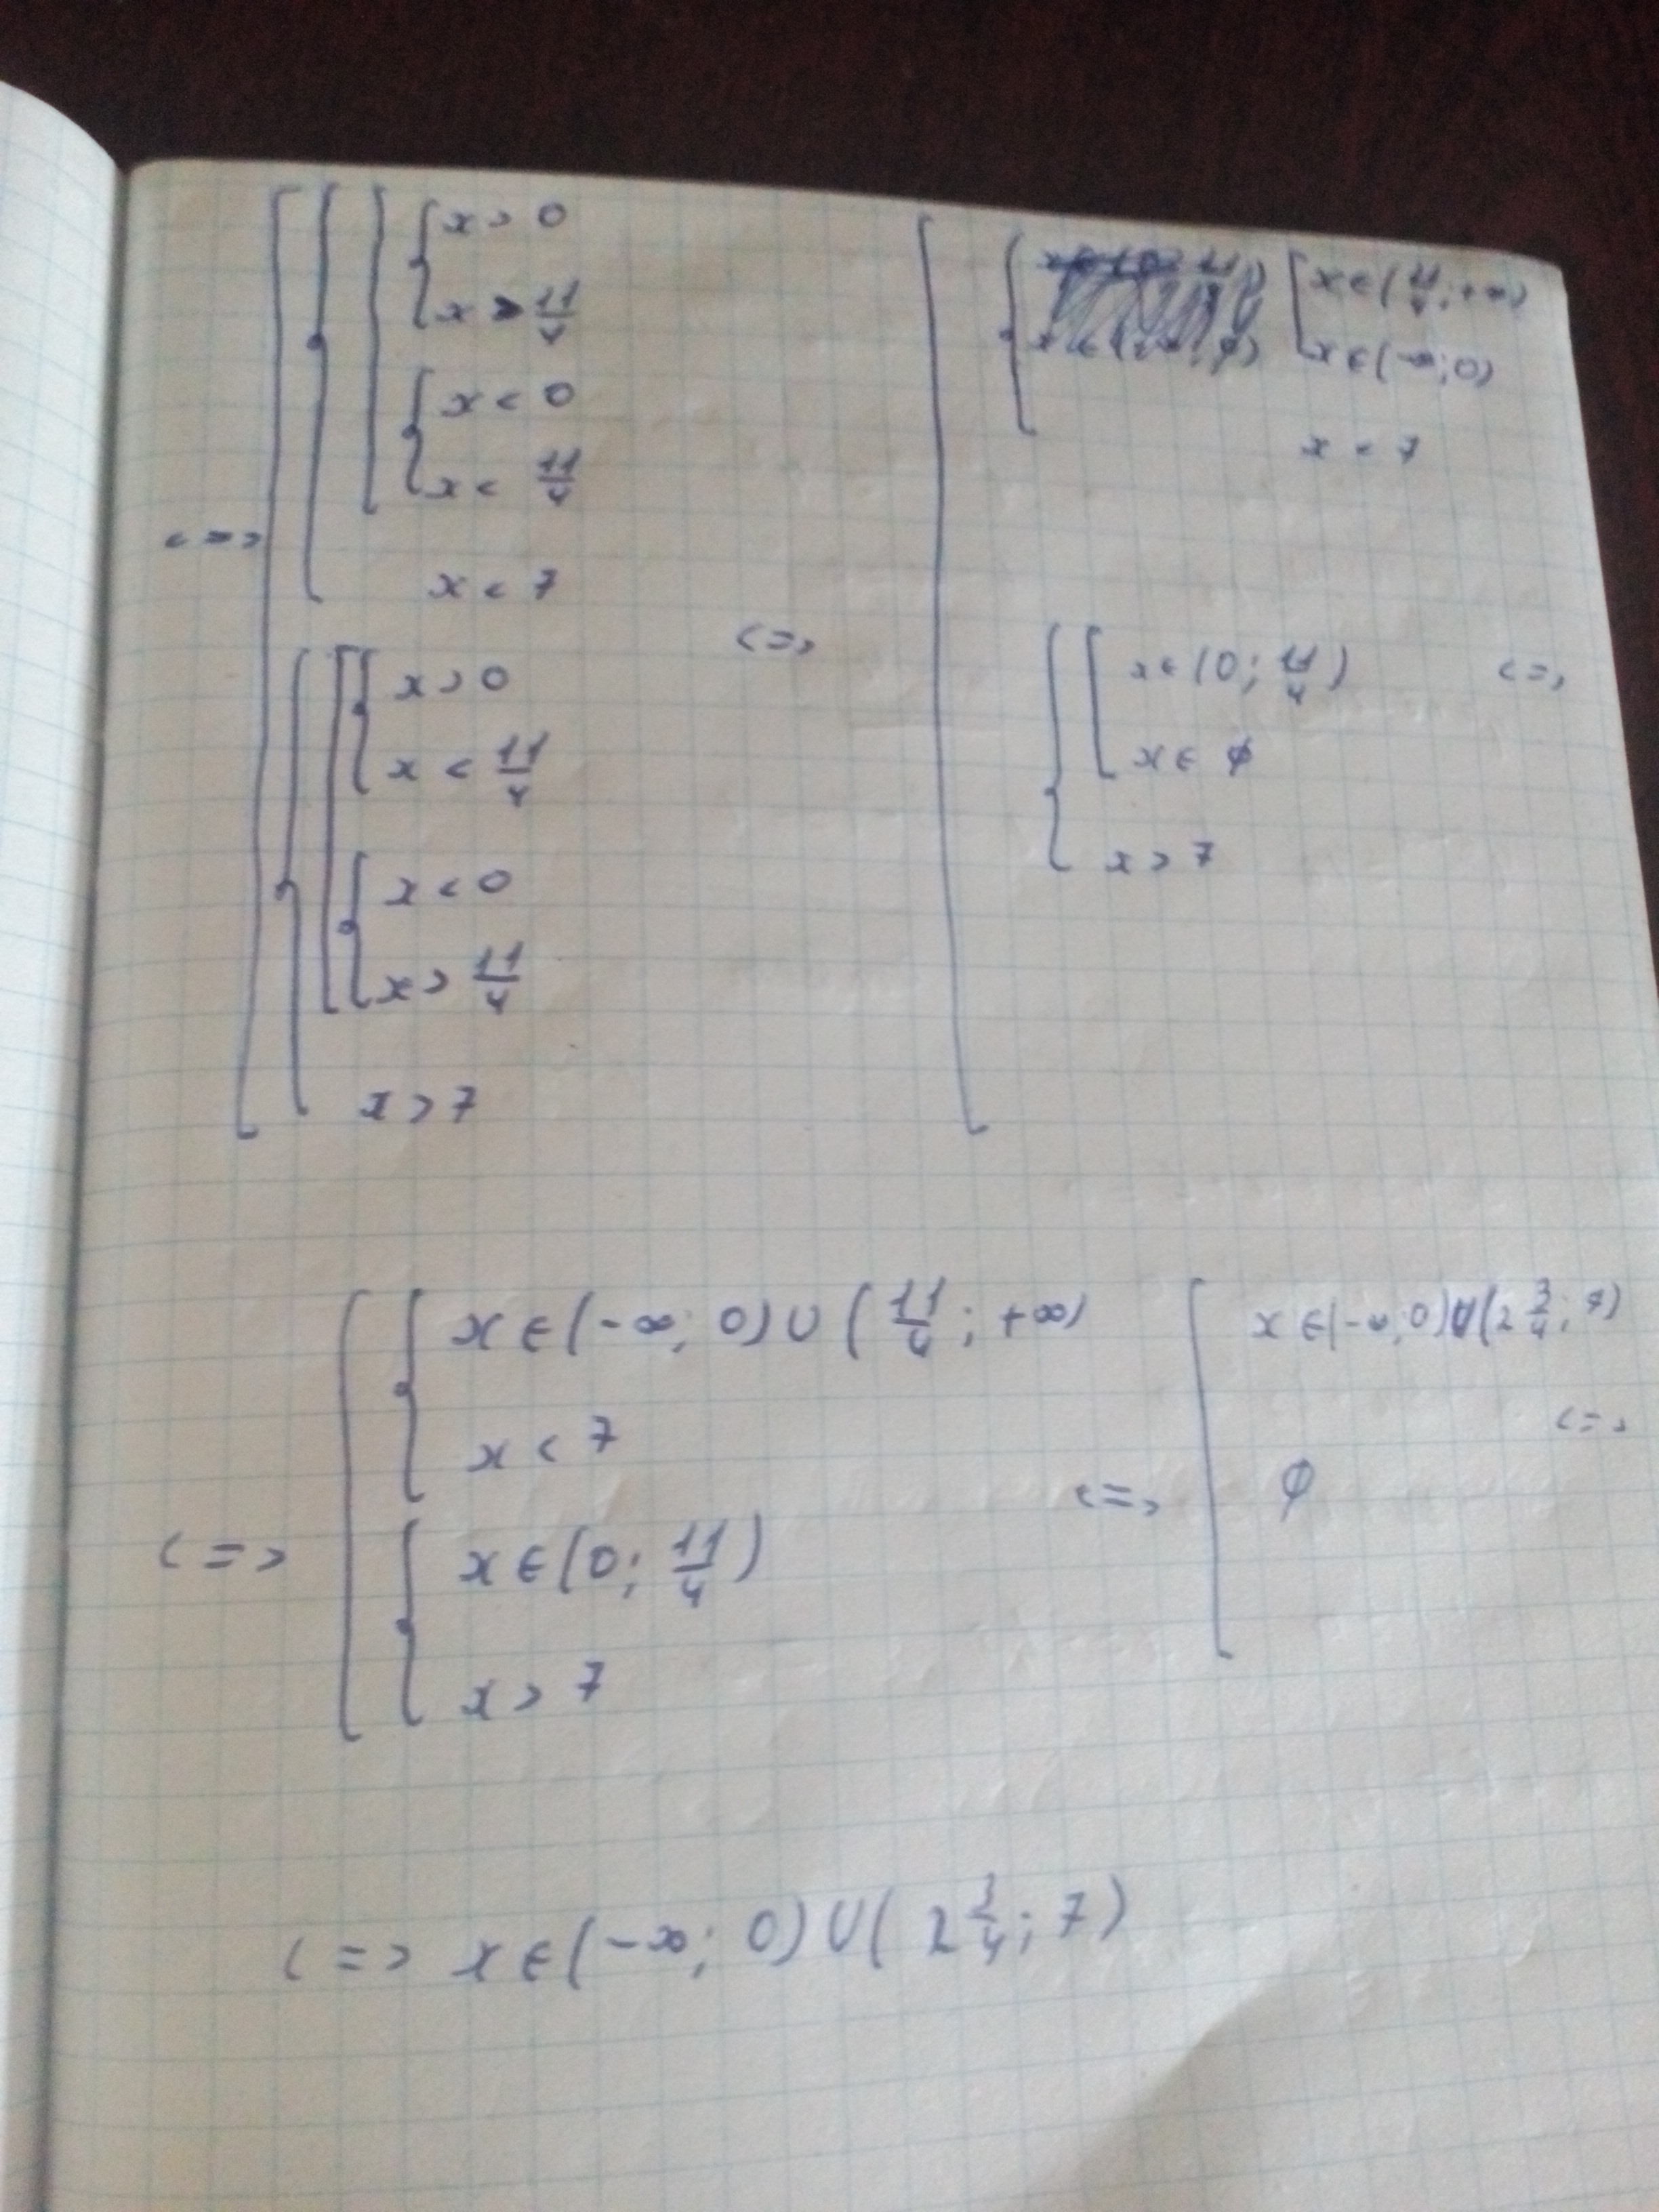 x > 0
x > 11/4
x < 0
x < 11/4
<=>
x < 7
x > 0
x < 11/4
x < 0
x > 11/4
x > 7
<=>
x ∈ (11/4; +∞)
x ∈ (-∞; 0)
x < 7
x ∈ (0; 11/4)
x ∈ ∅
x > 7
<=>
<=>
x ∈ (-∞; 0) ∪ (11/4; +∞)
x < 7
x ∈ (0; 11/4)
x > 7
<=>
x ∈ (-∞; 0) ∪ (2 3/4; 7)
∅
<=>
<=> x ∈ (-∞; 0) ∪ (2 3/4; 7)